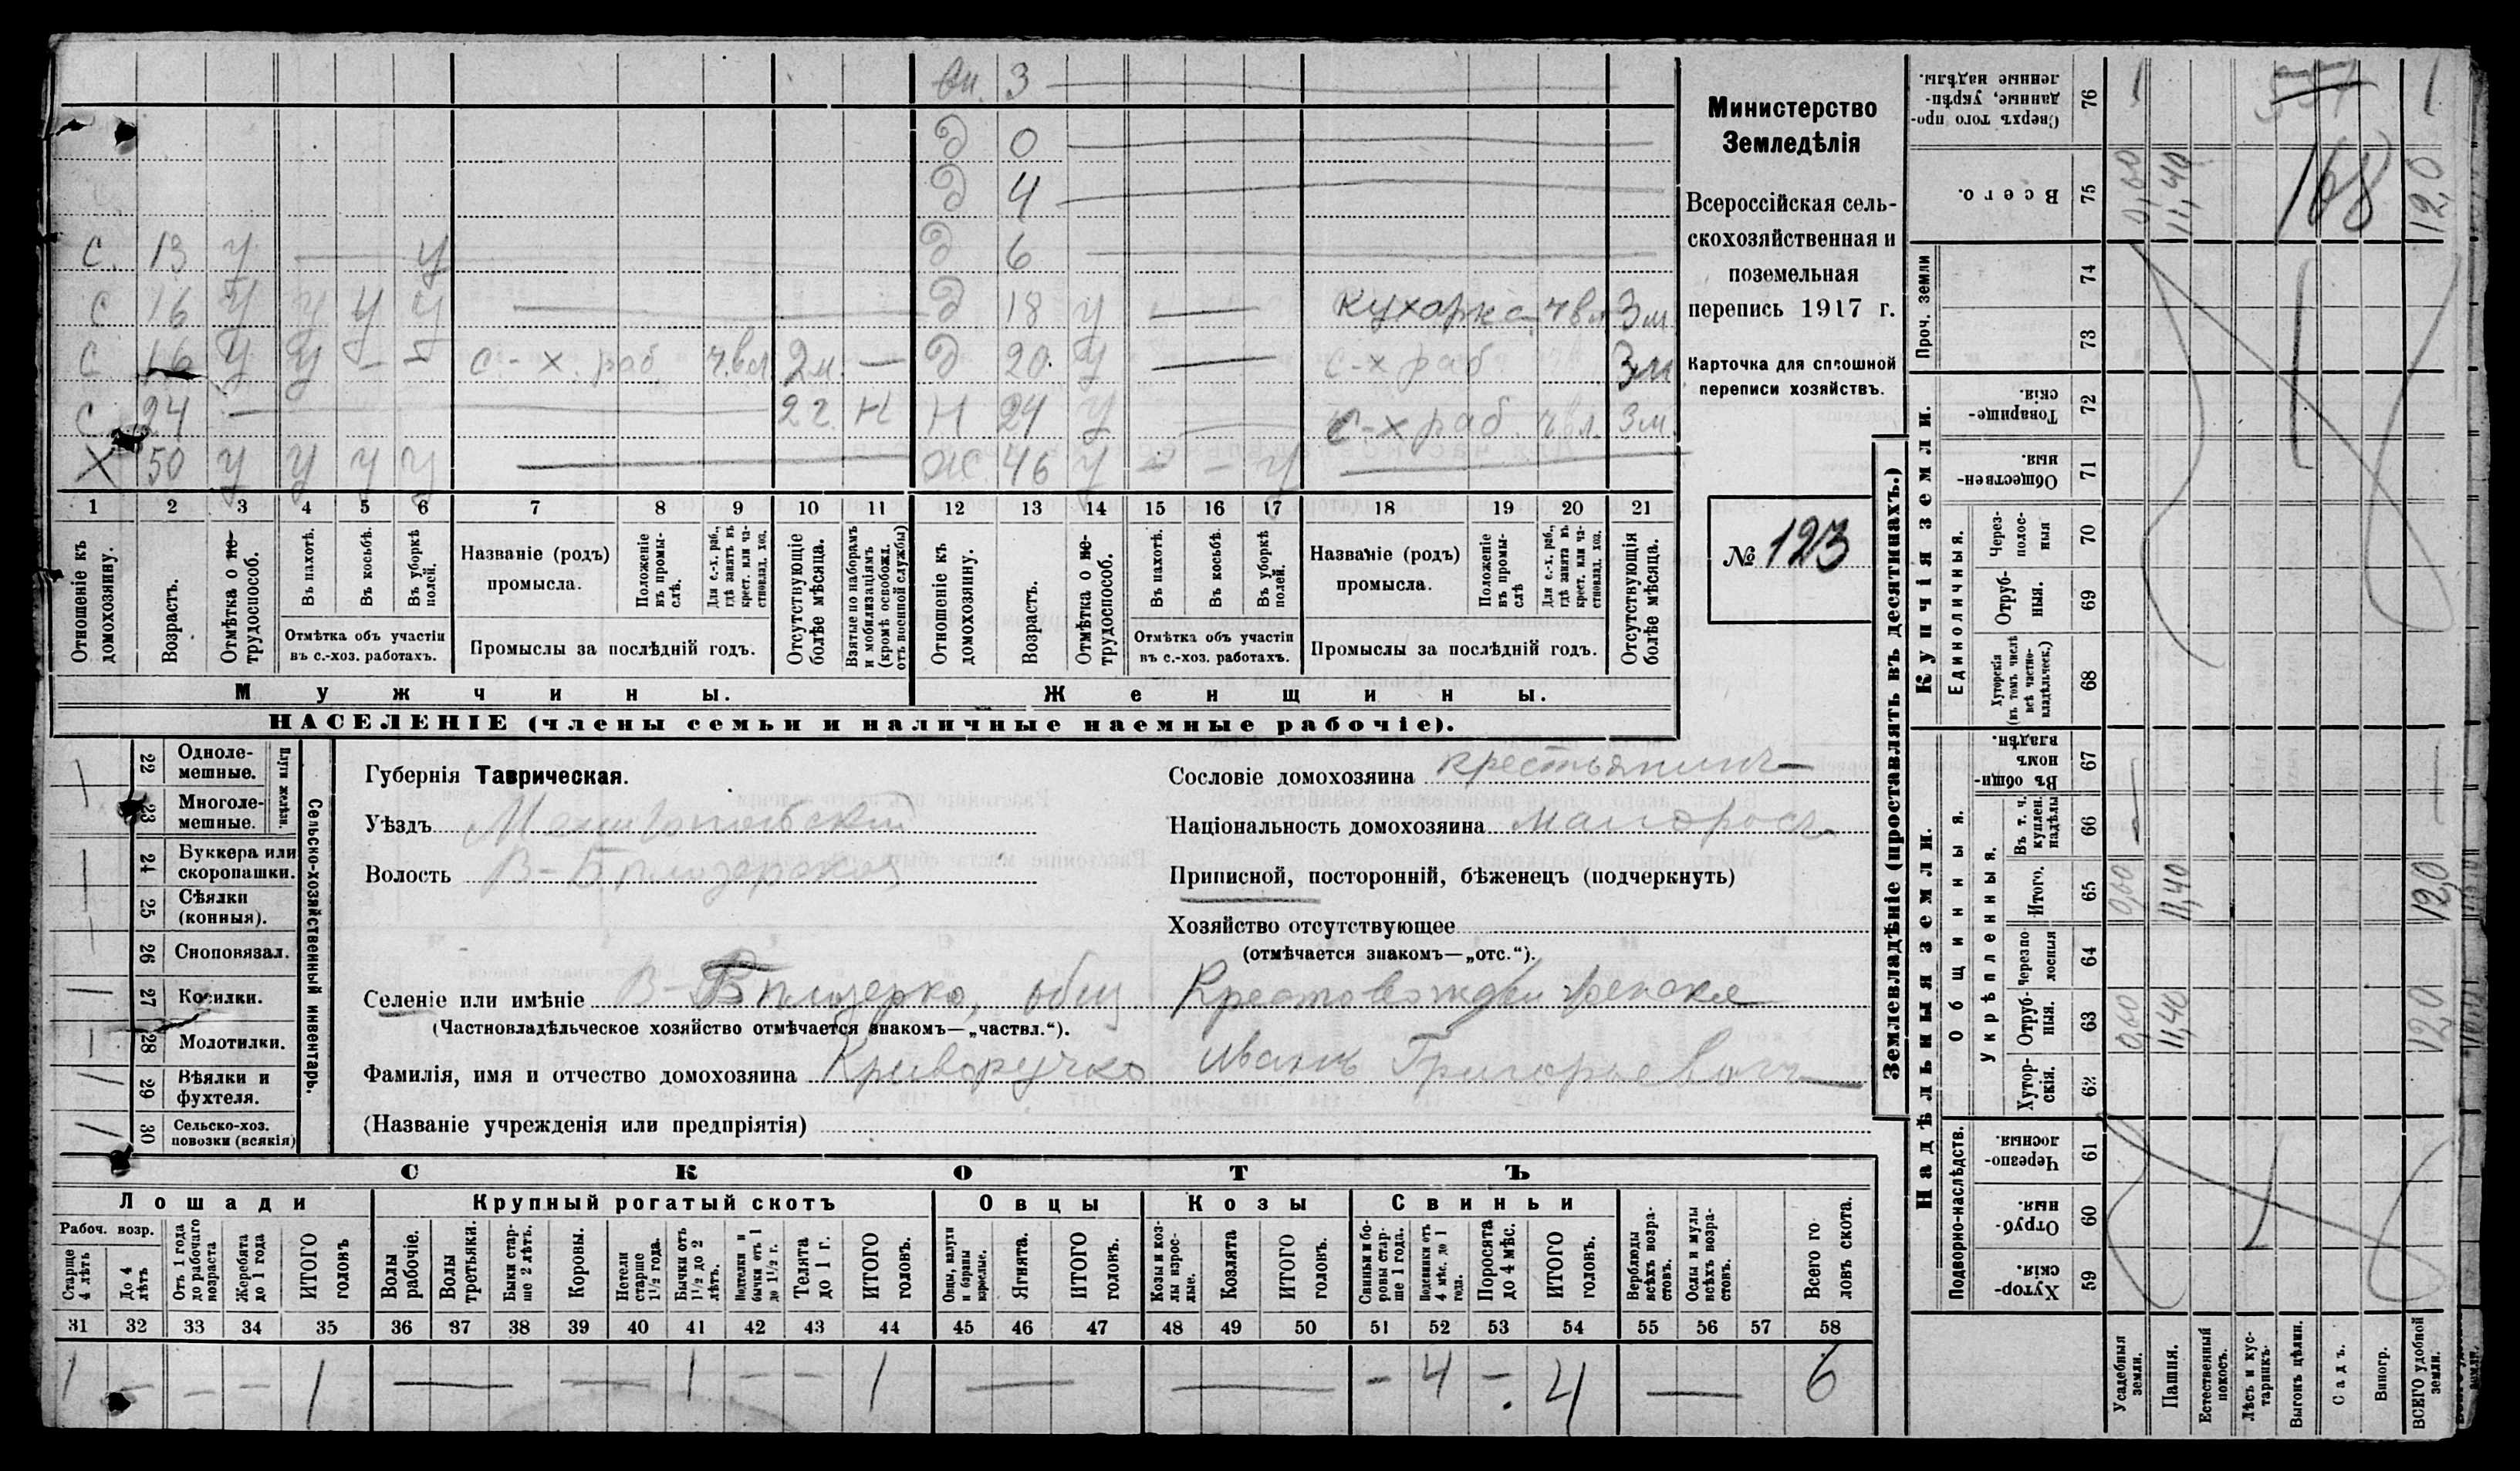 вн. 3
д 0
д 4
с. 13 у — у д 6
с 16 у у у у — д 18 у — кухарка ч вл 3 м
с 16 у у — — с-х. раб ч.вл. 2 м. — д 20 у — с-х раб 3 м
с 24 — 2 г. н н 24 у — с-х раб ч вл. 3 м.
х 50 у у у у — ж. 46 у — — у —
1 2 3 4 5 6 7 8 9 10 11 12 13 14 15 16 17 18 19 20 21
Отношеніе къ домохозяину.
Возрастъ.
Отмѣтка о не-трудоспособ.
Въ пахотѣ.
Въ косьбѣ.
Въ уборкѣ полей.
Отмѣтка объ участіи въ с.-хоз. работахъ.
Названіе (родъ) промысла.
Положеніе въ промыслѣ.
Для с.-х. раб., гдѣ занятъ въ крест. или частновлад. хоз.
Промыслы за послѣдній годъ.
Отсутствующіе болѣе мѣсяца.
Взятые по наборамъ и мобилизаціямъ (кромѣ освобожд. отъ военной службы)
Отношеніе къ домохозяину.
Возрастъ.
Отмѣтка о не-трудоспособ.
Въ пахотѣ.
Въ косьбѣ.
Въ уборкѣ полей.
Отмѣтка объ участіи въ с.-хоз. работахъ.
Названіе (родъ) промысла.
Положеніе въ промыслѣ
Для с.-х. раб., гдѣ занята въ крест. или частновлад. хоз.
Промыслы за послѣдній годъ.
Отсутствующія болѣе мѣсяца.
Мужчины. Женщины.
НАСЕЛЕНІЕ (члены семьи и наличные наемные рабочіе).
Министерство
Земледѣлія
Всероссійская сель-
скохозяйственная и
поземельная
перепись 1917 г.
Карточка для сплошной
переписи хозяйствъ.
№ 123
22 Одноле-мешные.
23 Многоле-мешные.
Плуги желѣзн.
24 Буккера или скоропашки.
25 Сѣялки (конныя).
26 Сноповязал.
27 Косилки.
28 Молотилки.
29 Вѣялки и фухтеля.
30 Сельско-хоз. повозки (всякія)
Сельско-хозяйственный инвентарь.
Губернія Таврическая.
Уѣздъ Мелитопольскій
Волость В-Бѣлозерская
Сословіе домохозяина крестьянинъ
Національность домохозяина малоросъ
Приписной, посторонній, бѣженецъ (подчеркнуть)
Хозяйство отсутствующее
(отмѣчается знакомъ—„отс.“).
Селеніе или имѣніе В-Бѣлозерка, общ. Крестовоздвиженское
(Частновладѣльческое хозяйство отмѣчается знакомъ—„частвл.“).
Фамилія, имя и отчество домохозяина Криворучко Иванъ Григорьевичъ
(Названіе учрежденія или предпріятія)
СКОТЪ
Лошади Крупный рогатый скотъ Овцы Козы Свиньи
Рабоч. возр.
Старше 4 лѣтъ
До 4 лѣтъ
Отъ 1 года до рабочаго возраста
Жеребята до 1 года
ИТОГО головъ
Волы рабочіе.
Волы третьяки.
Быки стар-ше 2 лѣтъ.
Коровы.
Нетели старше 1½ года.
Бычки отъ 1½ до 2 лѣтъ.
Подтелки и бычки отъ 1 до 1½ г.
Телята до 1 г.
ИТОГО головъ.
Овцы, валухи и бараны взрослые.
Ягнята.
ИТОГО головъ.
Козы и коз-лы взрос-лые.
Козлята
ИТОГО головъ.
Свиньи и бо-ровы стар-ше 1 года.
Подсвинки отъ 4 мѣс. до 1 года.
Поросята до 4 мѣс.
ИТОГО головъ.
Верблюды всѣхъ возра-стовъ.
Ослы и мулы всѣхъ возра-стовъ.
Всего го-ловъ скота.
31 32 33 34 35 36 37 38 39 40 41 42 43 44 45 46 47 48 49 50 51 52 53 54 55 56 57 58
1 — — — 1 — — 1 — — 1 — — — 4 — 4 — 6
Землевладѣніе (проставлять въ десятинахъ.)
Надѣльныя земли. Купчія земли.
Подворно-наслѣдств.
Общинныя.
Укрѣпленныя.
Единоличныя.
Проч. земли
Сверхъ того про-данные, укрѣп-ленные надѣлы. 76
Всего. 75
74
73
Товарище-скія. 72
Обществен-ныя. 71
Через-полос-ныя 70
Отруб-ныя. 69
Хуторскія (въ томъ числѣ всѣ частно-владѣльческ.) 68
Въ общин-номъ владѣн. 67
Въ т. ч. куплен. надѣлы 66
Итого. 65
Черезпо-лосныя 64
Отруб-ныя. 63
Хутор-скія. 62
Черезпо-лосныя. 61
Отруб-ныя. 60
Хутор-скія. 59
Усадебныя земли.
Пашня.
Естественный покосъ.
Лѣсъ и кус-тарникъ.
Выгонъ цѣлин.
Садъ.
Виногр.
ВСЕГО удобной земли.
0,60 11,40 168 12,0
0,60 11,40 12,0
0,60 11,40 12,0